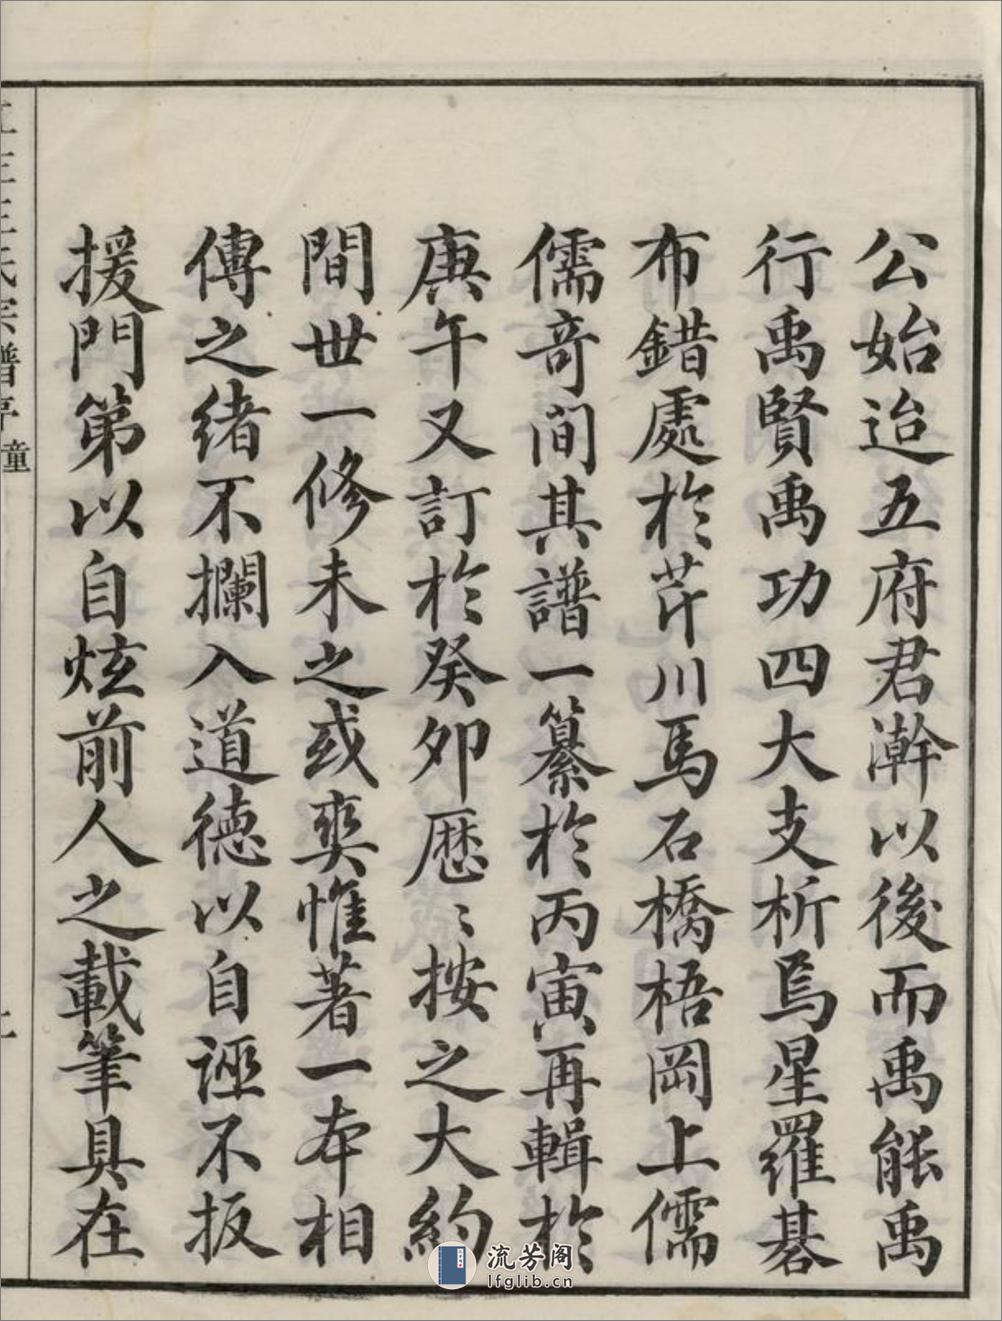 公始迨五府君澣以後而禹能禹
行禹賢禹功四大支析焉星羅碁
布錯處於芹川馬石橋梧岡上儒
儒竒間其譜一纂於丙寅再輯於
庚午又訂於癸卯歴〻按之大約
間世一修未之或爽惟著一本相
傳之緒不攔入道德以自誣不扳
援門第以自炫前人之載筆具在
王氏宗譜序 童
流芳阁
lfglib.cn